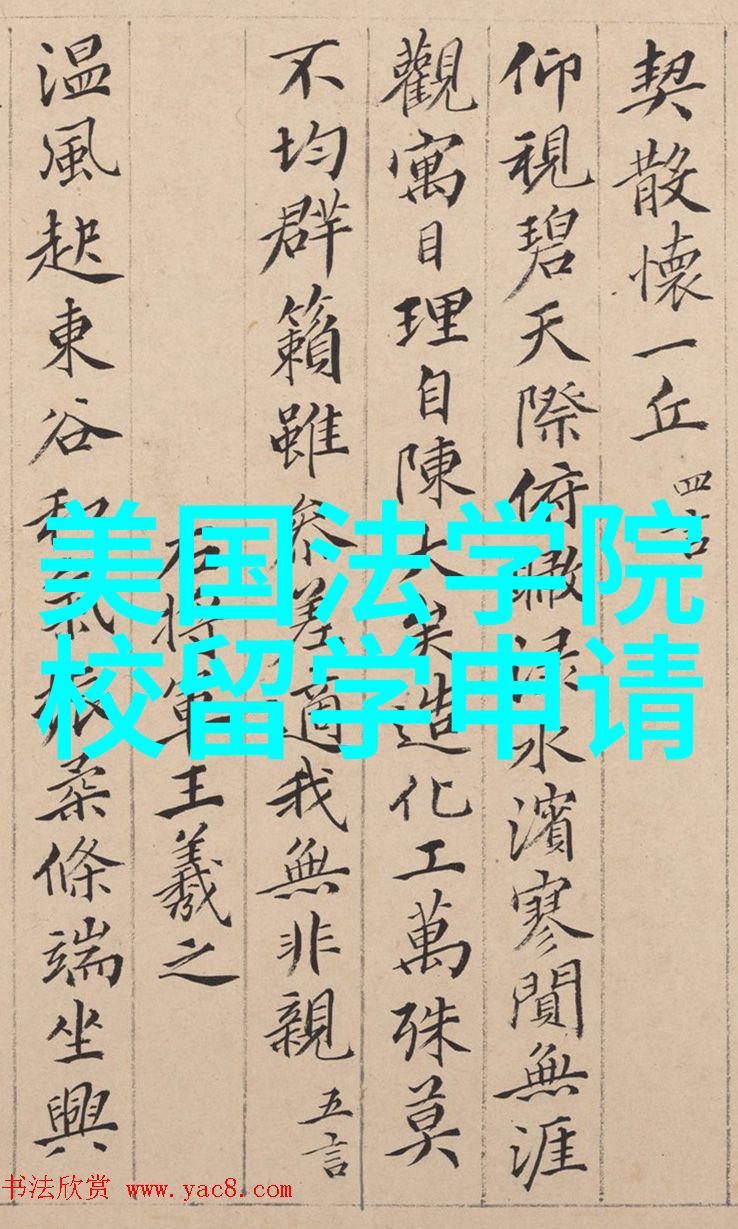 契散懷一丘 四言
仰視碧天際俯瞰淥水濱寥閴無涯
觀寓目理自陳大矣造化工萬殊莫
不均群籟雖參差適我無非親 五言
右將軍王羲之
温風起東谷和氣振柔條端坐興
美国法学院
校留学申请
书法欣赏 www.yac8.com